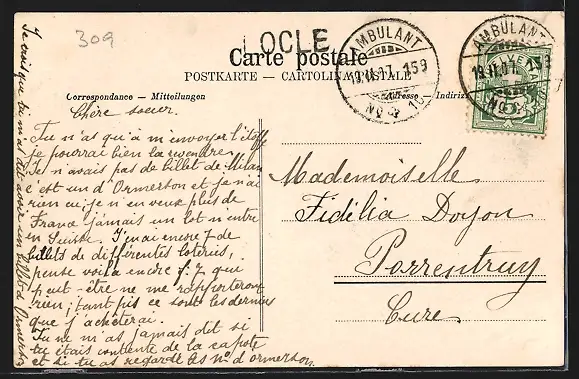 309
LOCLE
AMBULANT
19.II.07. 159
No 3
AMBULANT
Carte postale
POSTKARTE — CARTOLINA POSTALE
Correspondance — Mitteilungen
Adresse — Indirizzo
Chère soeur.
Tu n'as qu'à m'envoyer l'étoffe
je pourrai bien la revendre.
Je n'avais pas de billet de Milan
c'est un d'Ormerson et je n'ai
rien eu; je n'en veux plus de
France jamais un lot n'entre
en Suisse. J'en ai encore 7 de
billets de différentes loteries,
pense voilà encore f. 7 qui
peut-être ne me rapporteron
rien; tant pis ce sont les derniers
que j'achèterai.
Tu ne m'as jamais dit si
tu étais contente de la capote
et si tu as regardé les No. d'ormerson.
Je crois que tu m'as dit avoir un billet d'Ormerson
Mademoiselle
Fidélia Doyon
Porrentruy
Cure